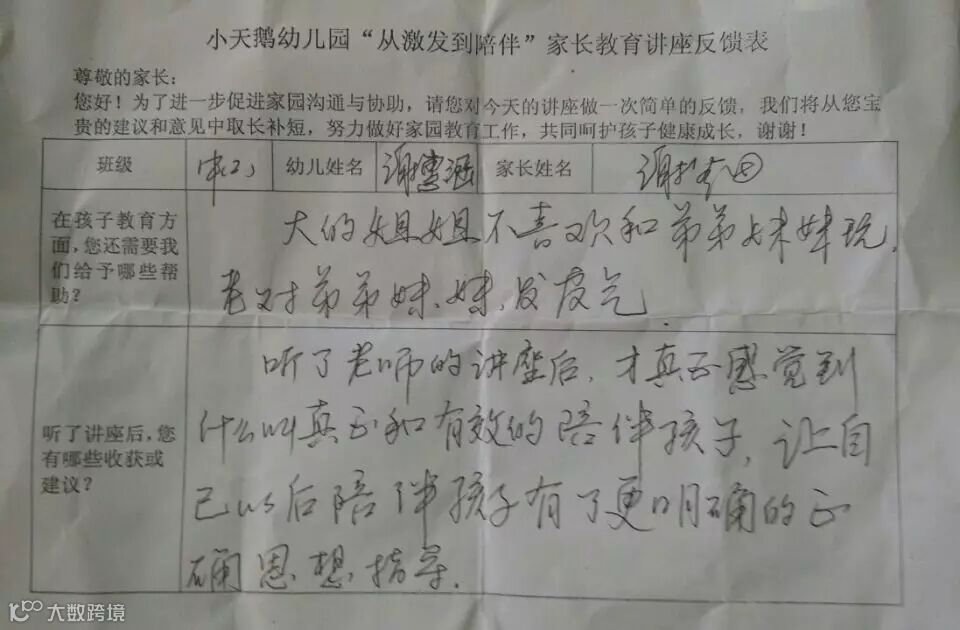 小天鹅幼儿园“从激发到陪伴”家长教育讲座反馈表
尊敬的家长：
您好！为了进一步促进家园沟通与协助，请您对今天的讲座做一次简单的反馈，我们将从您宝
贵的建议和意见中取长补短，努力做好家园教育工作，共同呵护孩子健康成长，谢谢！
班级 幼儿姓名 家长姓名
在孩子教育方
面，您还需要我
们给予哪些帮
助？
大的姐姐不喜欢和弟弟妹妹玩，
老对弟弟妹妹发皮气
听了讲座后，您
有哪些收获或
建议？
听了老师的讲座后，才真正感觉到
什么叫真正和有效的陪伴孩子，让自
己以后陪伴孩子有了更明确的正
确思想指导.
大数跨境